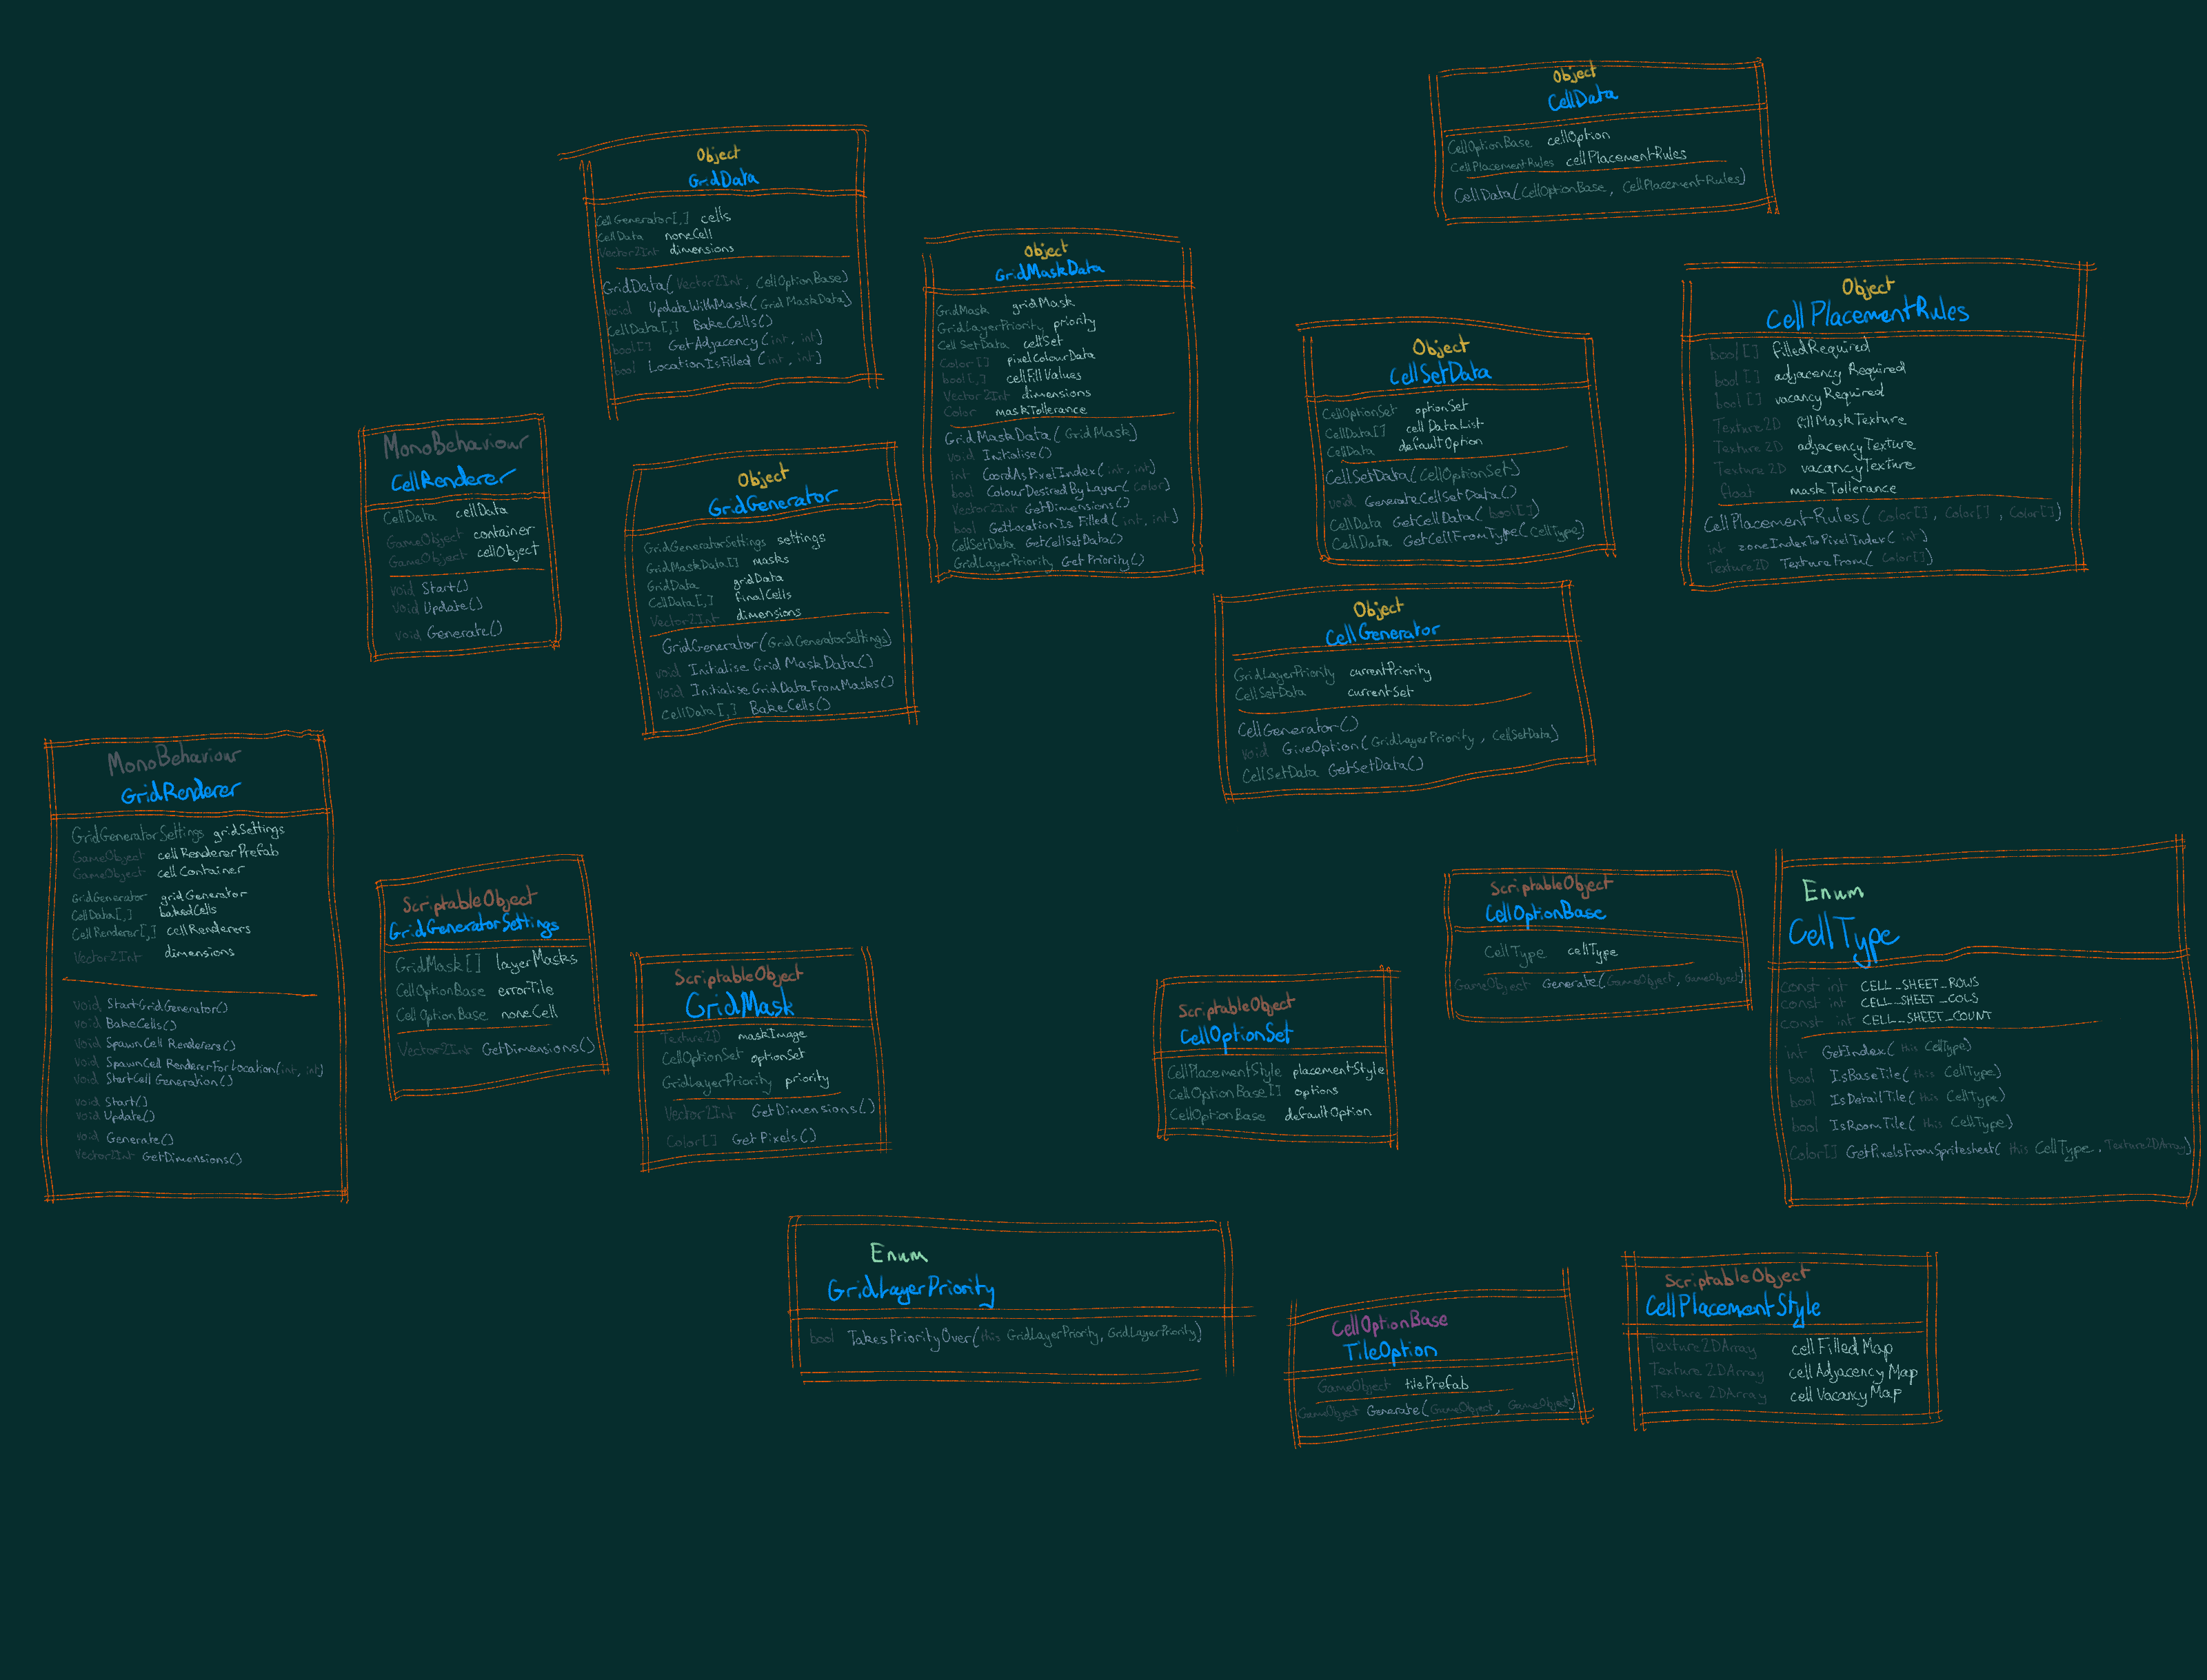 Object
CellData
CellOptionBase cellOption
CellPlacementRules cellPlacementRules
CellData(CellOptionBase, CellPlacementRules)
Object
GridData
CellGenerator[,] cells
CellData noneCell
Vector2Int dimensions
GridData(Vector2Int, CellOptionBase)
void UpdateWithMask(GridMaskData)
CellData[,] BakeCells()
bool[] GetAdjacency(int, int)
bool LocationIsFilled(int, int)
Object
GridMaskData
GridMask gridMask
GridLayerPriority priority
CellSetData cellSet
Color[] pixelColourData
bool[,] cellFillValues
Vector2Int dimensions
Color maskTollerance
GridMaskData(GridMask)
void Initialise()
int CoordAsPixelIndex(int, int)
bool ColourDesiredByLayer(color)
Vector2Int GetDimensions()
bool GetLocationIsFilled(int, int)
CellSetData GetCellSetData()
GridLayerPriority GetPriority()
Object
CellSetData
CellOptionSet optionSet
CellData[] cellDataList
CellData defaultOption
CellSetData(CellOptionSet)
void GenerateCellSetData()
CellData GetCellData(bool[])
CellData GetCellFromType(CellType)
Object
CellPlacementRules
bool[] filledRequired
bool[] adjacencyRequired
bool[] vacancyRequired
Texture2D fillMaskTexture
Texture2D adjacencyTexture
Texture2D vacancyTexture
float maskTollerance
CellPlacementRules(Color[], Color[], Color[])
int zoneIndexToPixelIndex(int)
Texture2D TextureFrom(Color[])
MonoBehaviour
CellRenderer
CellData cellData
GameObject container
GameObject cellObject
void Start()
void Update()
void Generate()
Object
GridGenerator
GridGeneratorSettings settings
GridMaskData[] masks
GridData gridData
CellData[,] finalCells
Vector2Int dimensions
GridGenerator(GridGeneratorSettings)
void InitialiseGridMaskData()
void InitialiseGridDataFromMasks()
CellData[,] BakeCells()
Object
CellGenerator
GridLayerPriority currentPriority
CellSetData currentSet
CellGenerator()
void GiveOption(GridLayerPriority, CellSetData)
CellSetData GetSetData()
MonoBehaviour
GridRenderer
GridGeneratorSettings gridSettings
GameObject cellRendererPrefab
GameObject cellContainer
GridGenerator gridGenerator
CellData[,] bakedCells
CellRenderer[,] cellRenderers
Vector2Int dimensions
void StartGridGenerator()
void BakeCells()
void SpawnCellRenderers()
void SpawnCellRendererForLocation(int, int)
void StartCellGeneration()
void Start()
void Update()
void Generate()
Vector2Int GetDimensions()
ScriptableObject
GridGeneratorSettings
GridMask[] layerMasks
CellOptionBase errorTile
CellOptionBase noneCell
Vector2Int GetDimensions()
ScriptableObject
GridMask
Texture2D maskImage
CellOptionSet optionSet
GridLayerPriority priority
Vector2Int GetDimensions()
Color[] GetPixels()
ScriptableObject
CellOptionSet
CellPlacementStyle placementStyle
CellOptionBase[] options
CellOptionBase defaultOption
ScriptableObject
CellOptionBase
CellType cellType
GameObject Generate(GameObject, GameObject)
Enum
CellType
const int CELL_SHEET_ROWS
const int CELL_SHEET_COLS
const int CELL_SHEET_COUNT
int GetIndex(this CellType)
bool IsBaseTile(this CellType)
bool IsDetailTile(this CellType)
bool IsRoomTile(this CellType)
Color[] GetPixelsFromSpritesheet(this CellType, Texture2DArray)
Enum
GridLayerPriority
bool TakesPriorityOver(this GridLayerPriority, GridLayerPriority)
CellOptionBase
TileOption
GameObject tilePrefab
GameObject Generate(GameObject, GameObject)
ScriptableObject
CellPlacementStyle
Texture2DArray cellFilledMap
Texture2DArray cellAdjacencyMap
Texture2DArray cellVacancyMap